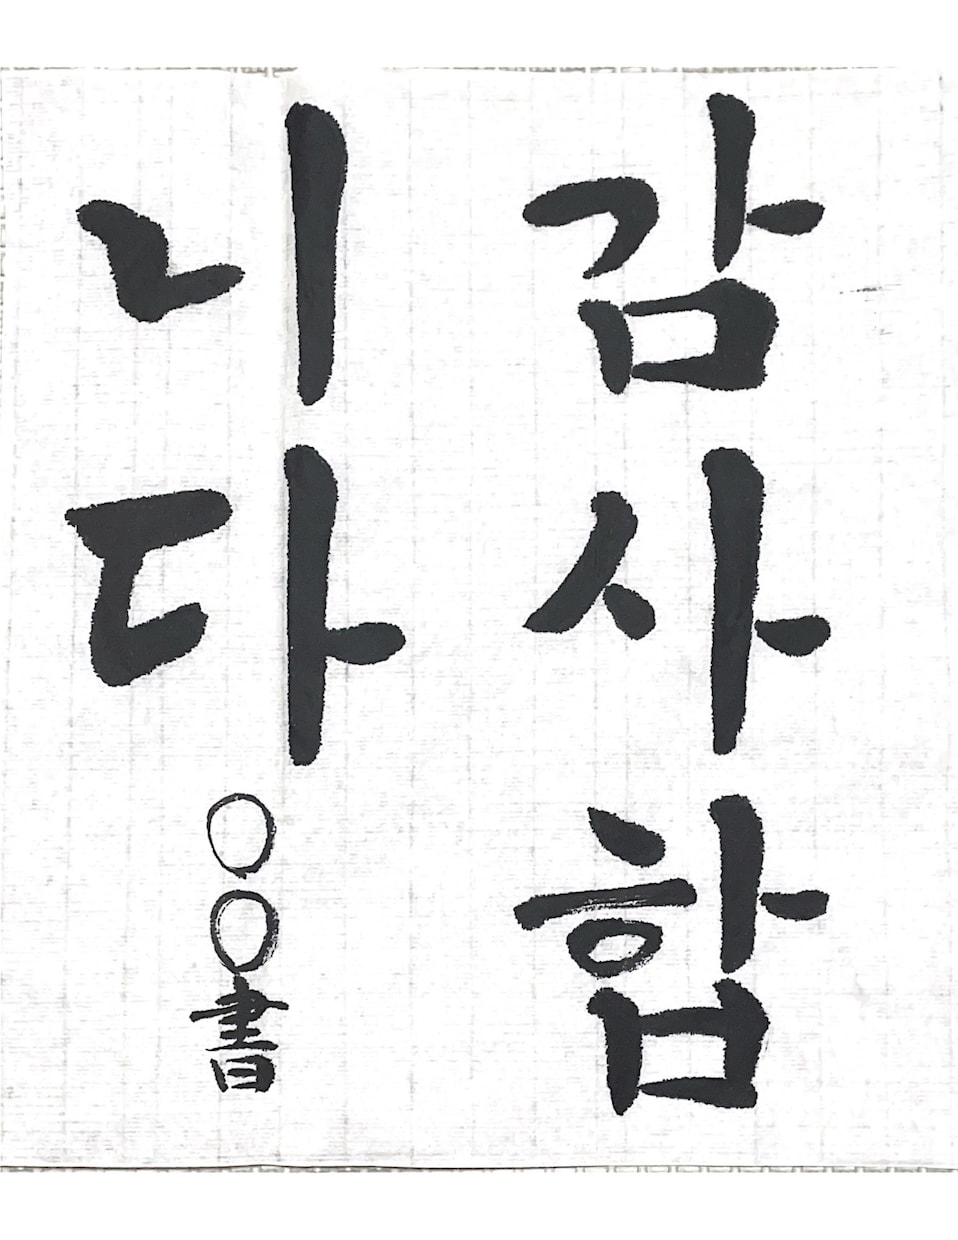 감사함
니다
○○書